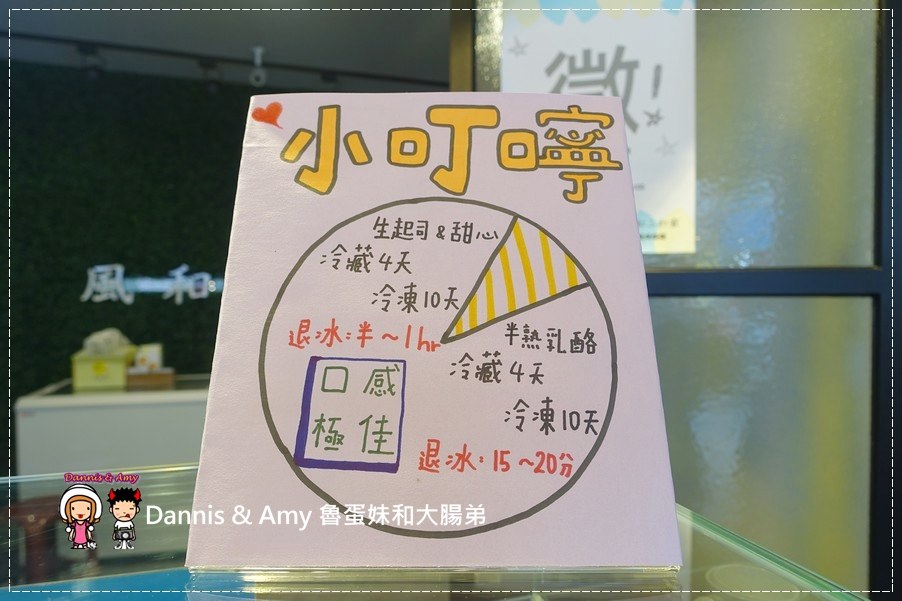 微!
小叮嚀
生起司&甜心
冷藏4天
冷凍10天
退冰:半~1hr
半熟乳酪
冷藏4天
冷凍10天
退冰:15~20分
口感
極佳
風和
Dannis & Amy
Dannis & Amy 魯蛋妹和大腸弟